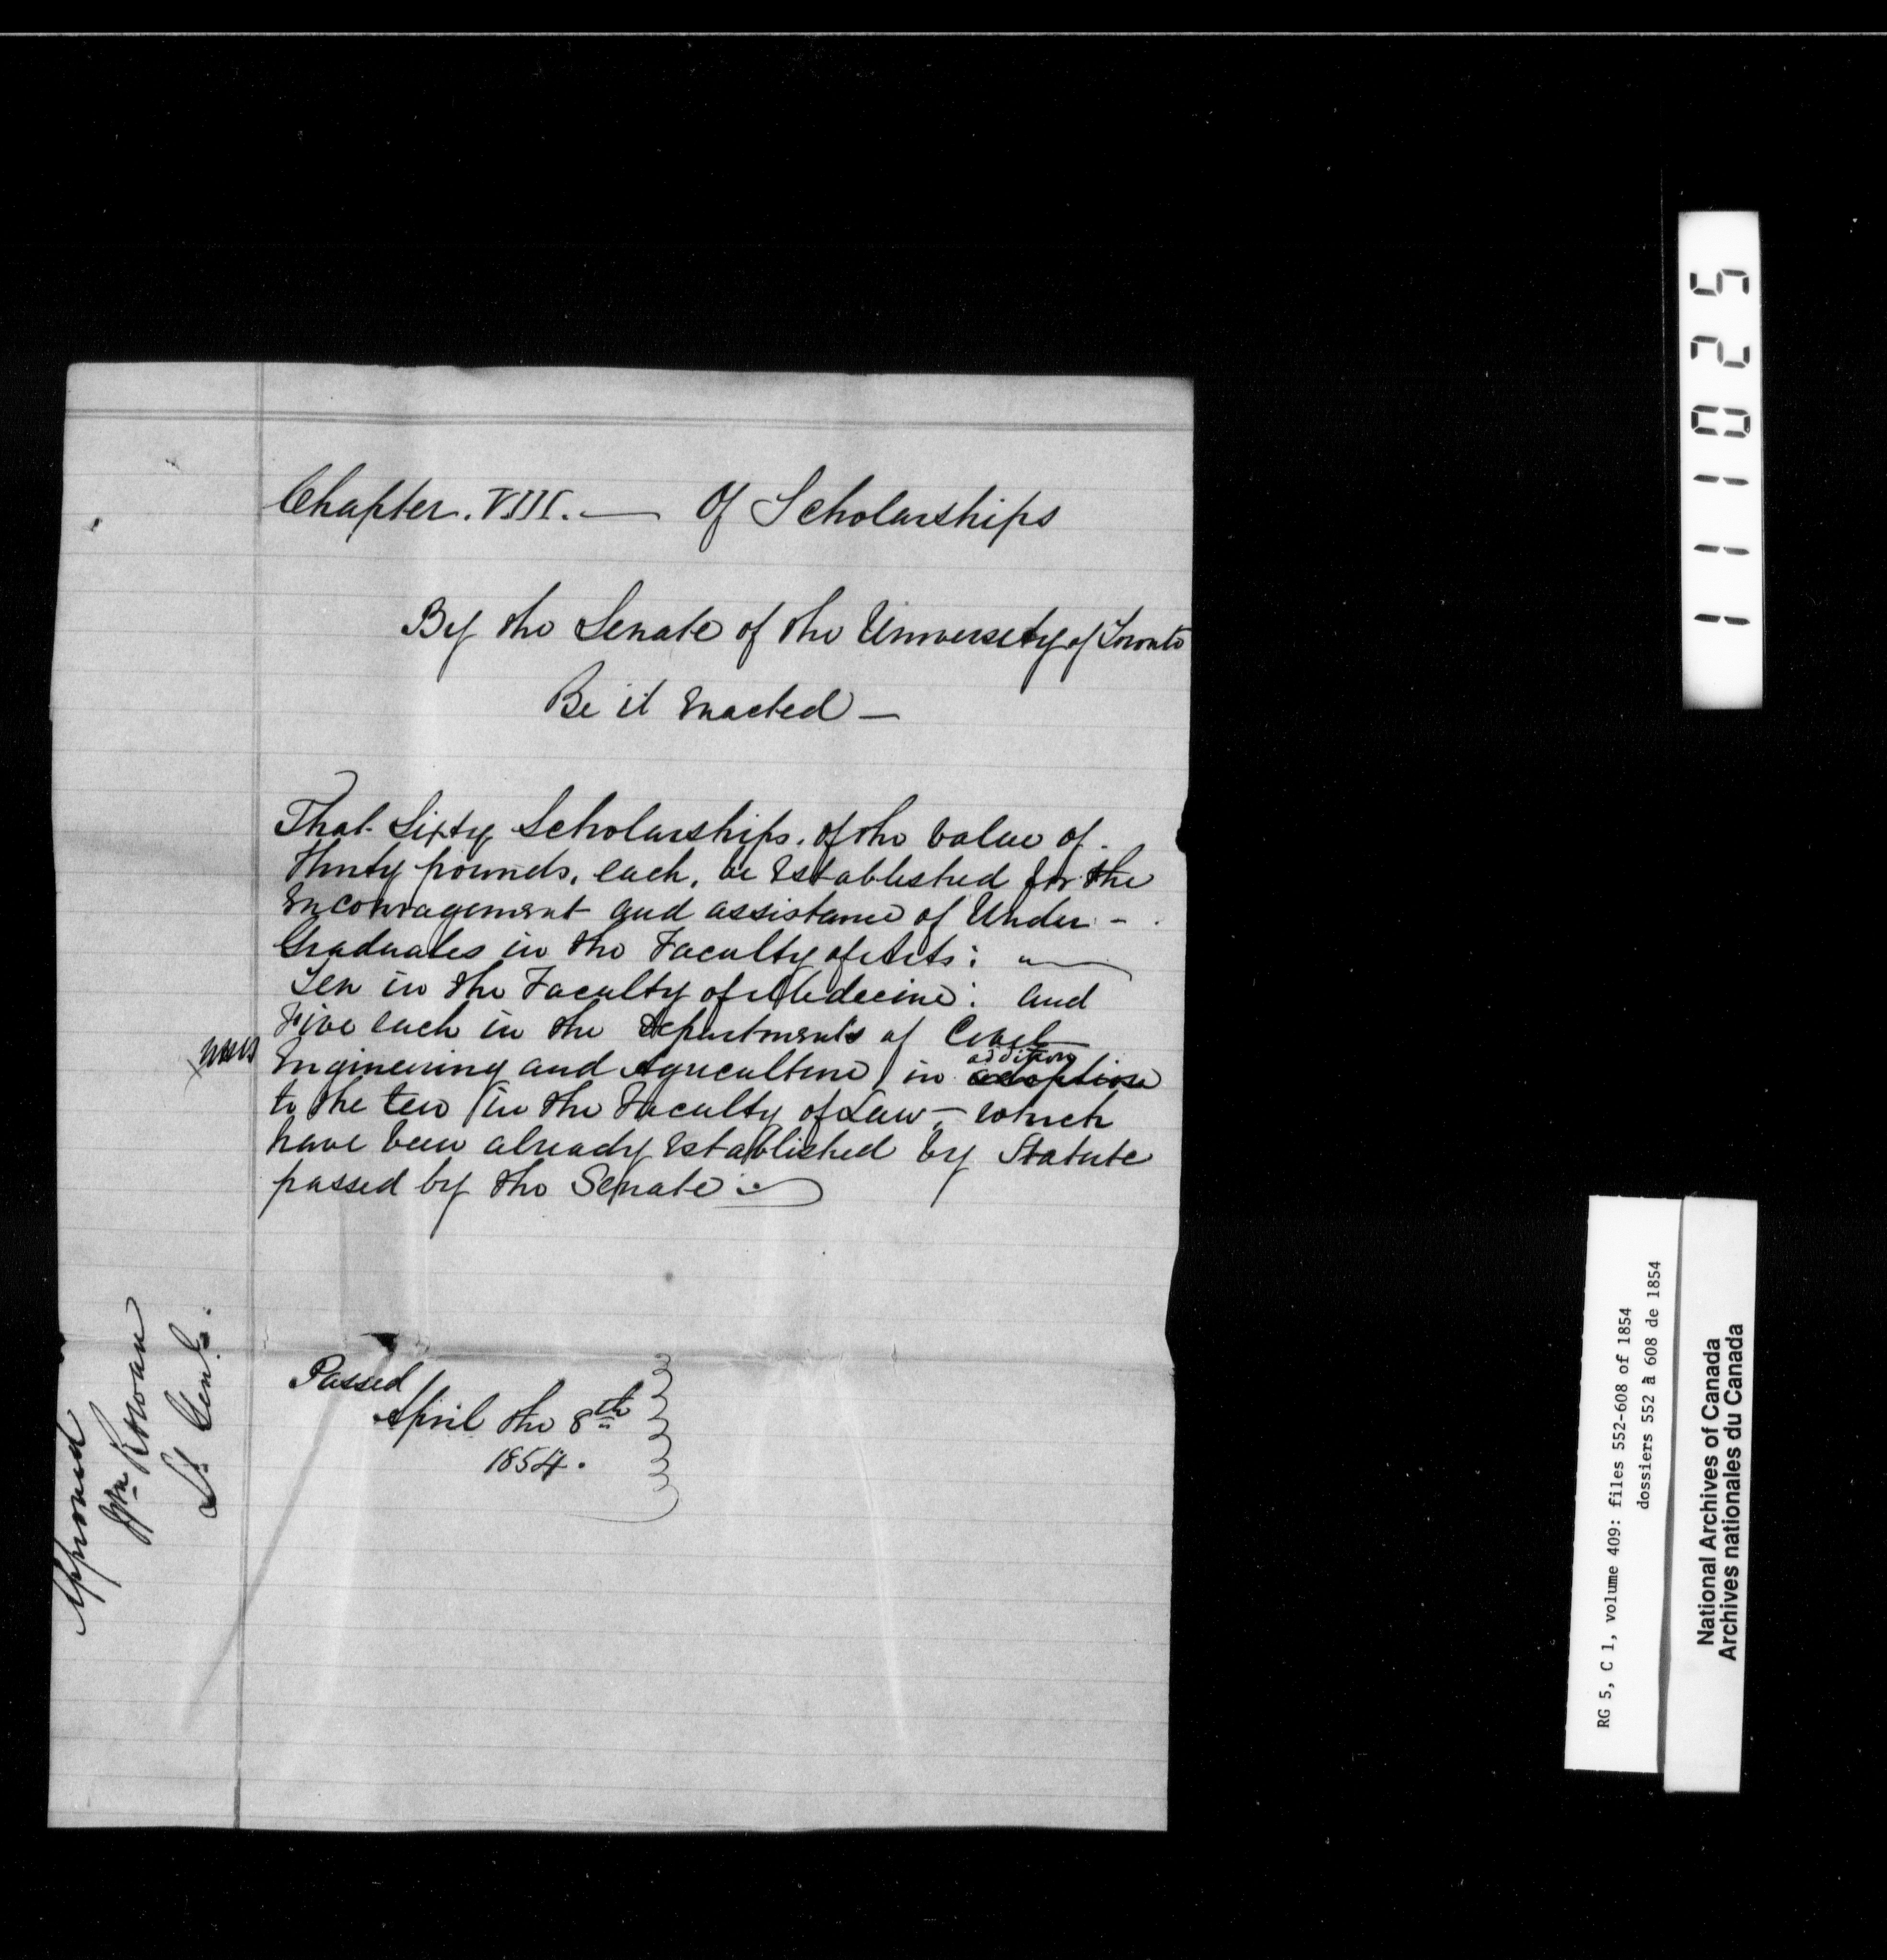 Chapter. VIII. — Of Scholarships
By the Senate of the University of Toronto
Be it Enacted —
That Sixty Scholarships. of the value of.
thirty pounds, each, be Established for the
Encouragement and assistance of Under -
Graduates in the Faculty of Arts :
Ten in the Faculty of Medecine : and
Five each in the Departments of Civil
Engineering and Agriculture, in adoptione addition
to the ten in the Faculty of Law, - which
have been already Established by Statute
passed by the Senate
Passed
April the 8th
1854.
Approved
Wm Rowan
Lt Genl.
111025
RG 5, C 1, volume 409: files 552-608 of 1854
dossiers 552 à 608 de 1854
National Archives of Canada
Archives nationales du Canada